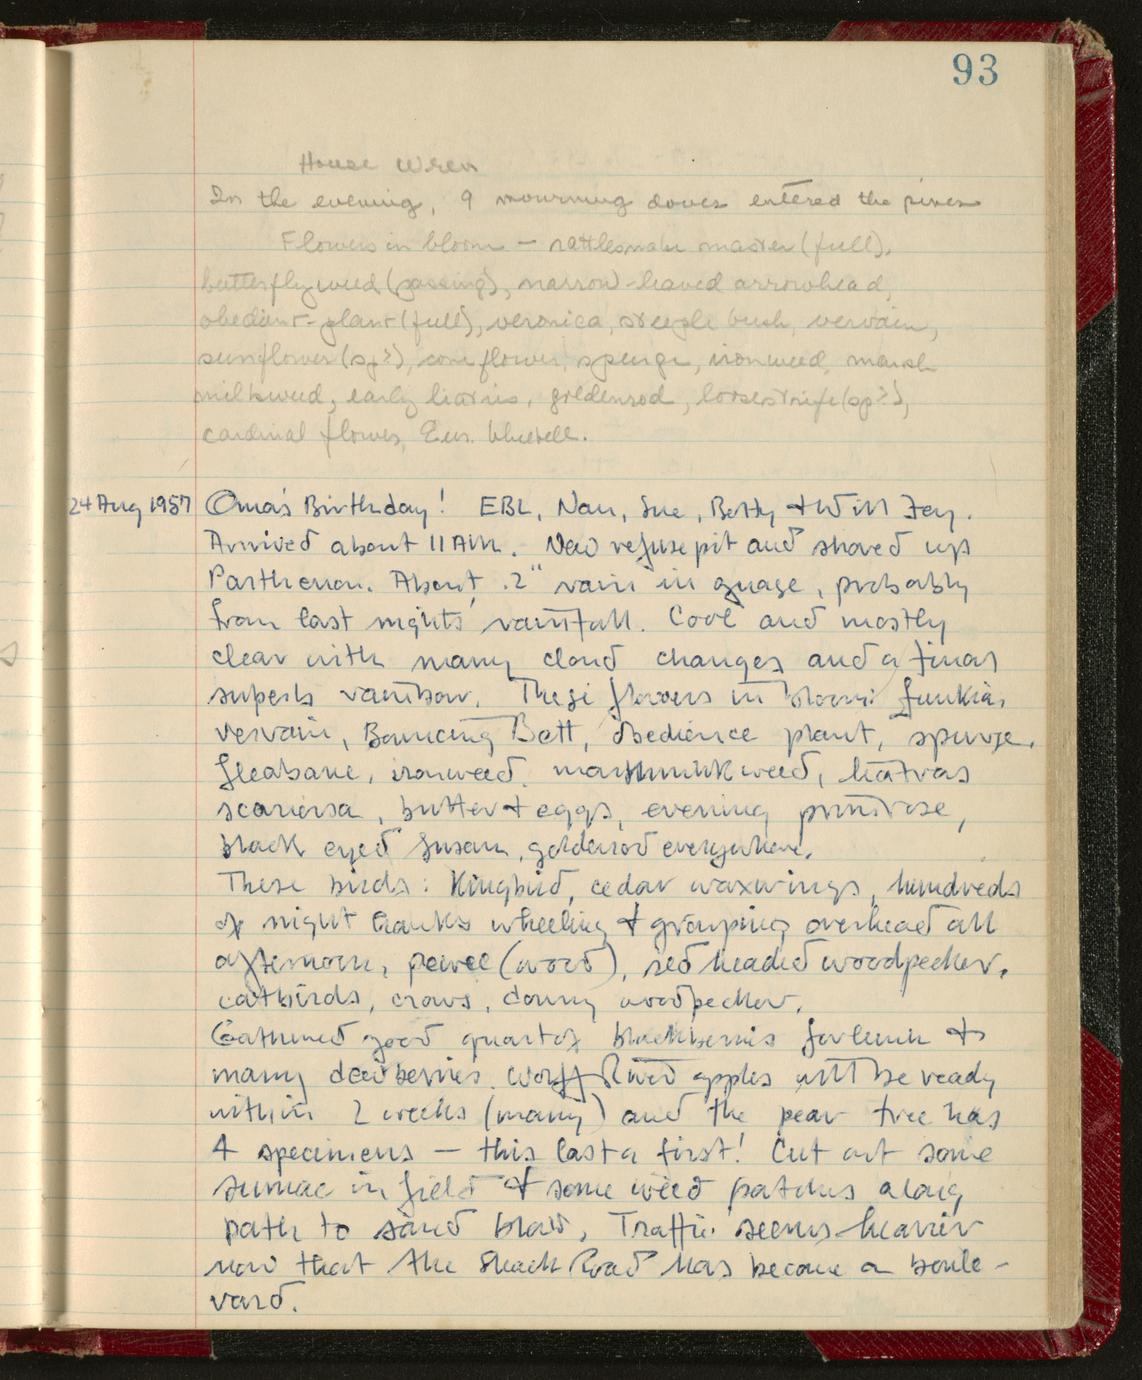 93
House Wren
In the evening, 9 mourning doves entered the pines
Flowers in bloom — rattlesnake master (full),
butterflyweed (passing), narrow-leaved arrowhead,
obedient-plant (full), veronica, steeple bush, vervain,
sunflower (sp?), cone flower, spurge, ironweed, marsh
milkweed, early liatris, goldenrod, loosestrife (sp?),
cardinal flower, Eur. bluebell.
24 Aug 1957 Oma's Birthday! EBL, Nan, Sue, Betty & Will Fey.
Arrived about 11 AM. New refuse pit and shored up
Parthenon. About .2" rain in guage, probably
from last nights' rainfall. Cool and mostly
clear with many cloud changes and a final
superb rainbow. These flowers in bloom: funkia,
vervain, Bouncing Bett, obedience plant, spurge,
fleabane, ironweed, marshmilkweed, liatras
scariosa, butter & eggs, evening primrose,
black eyed Susan, goldenrod everywhere.
These birds: Kingbird, cedar waxwings, hundreds
of night hawks wheeling & grouping overhead all
afternoon, pewee (wood), red headed woodpecker,
catbirds, crows, downy woodpecker.
Gathered good quart of blackberries for lunch &
many dewberries. Wolf River apples will be ready
within 2 weeks (many) and the pear tree has
4 specimens — this last a first! Cut out some
sumac in field & some weed patches along
path to sand blow. Traffic seems heavier
now that the Shack Road has become a boule-
vard.